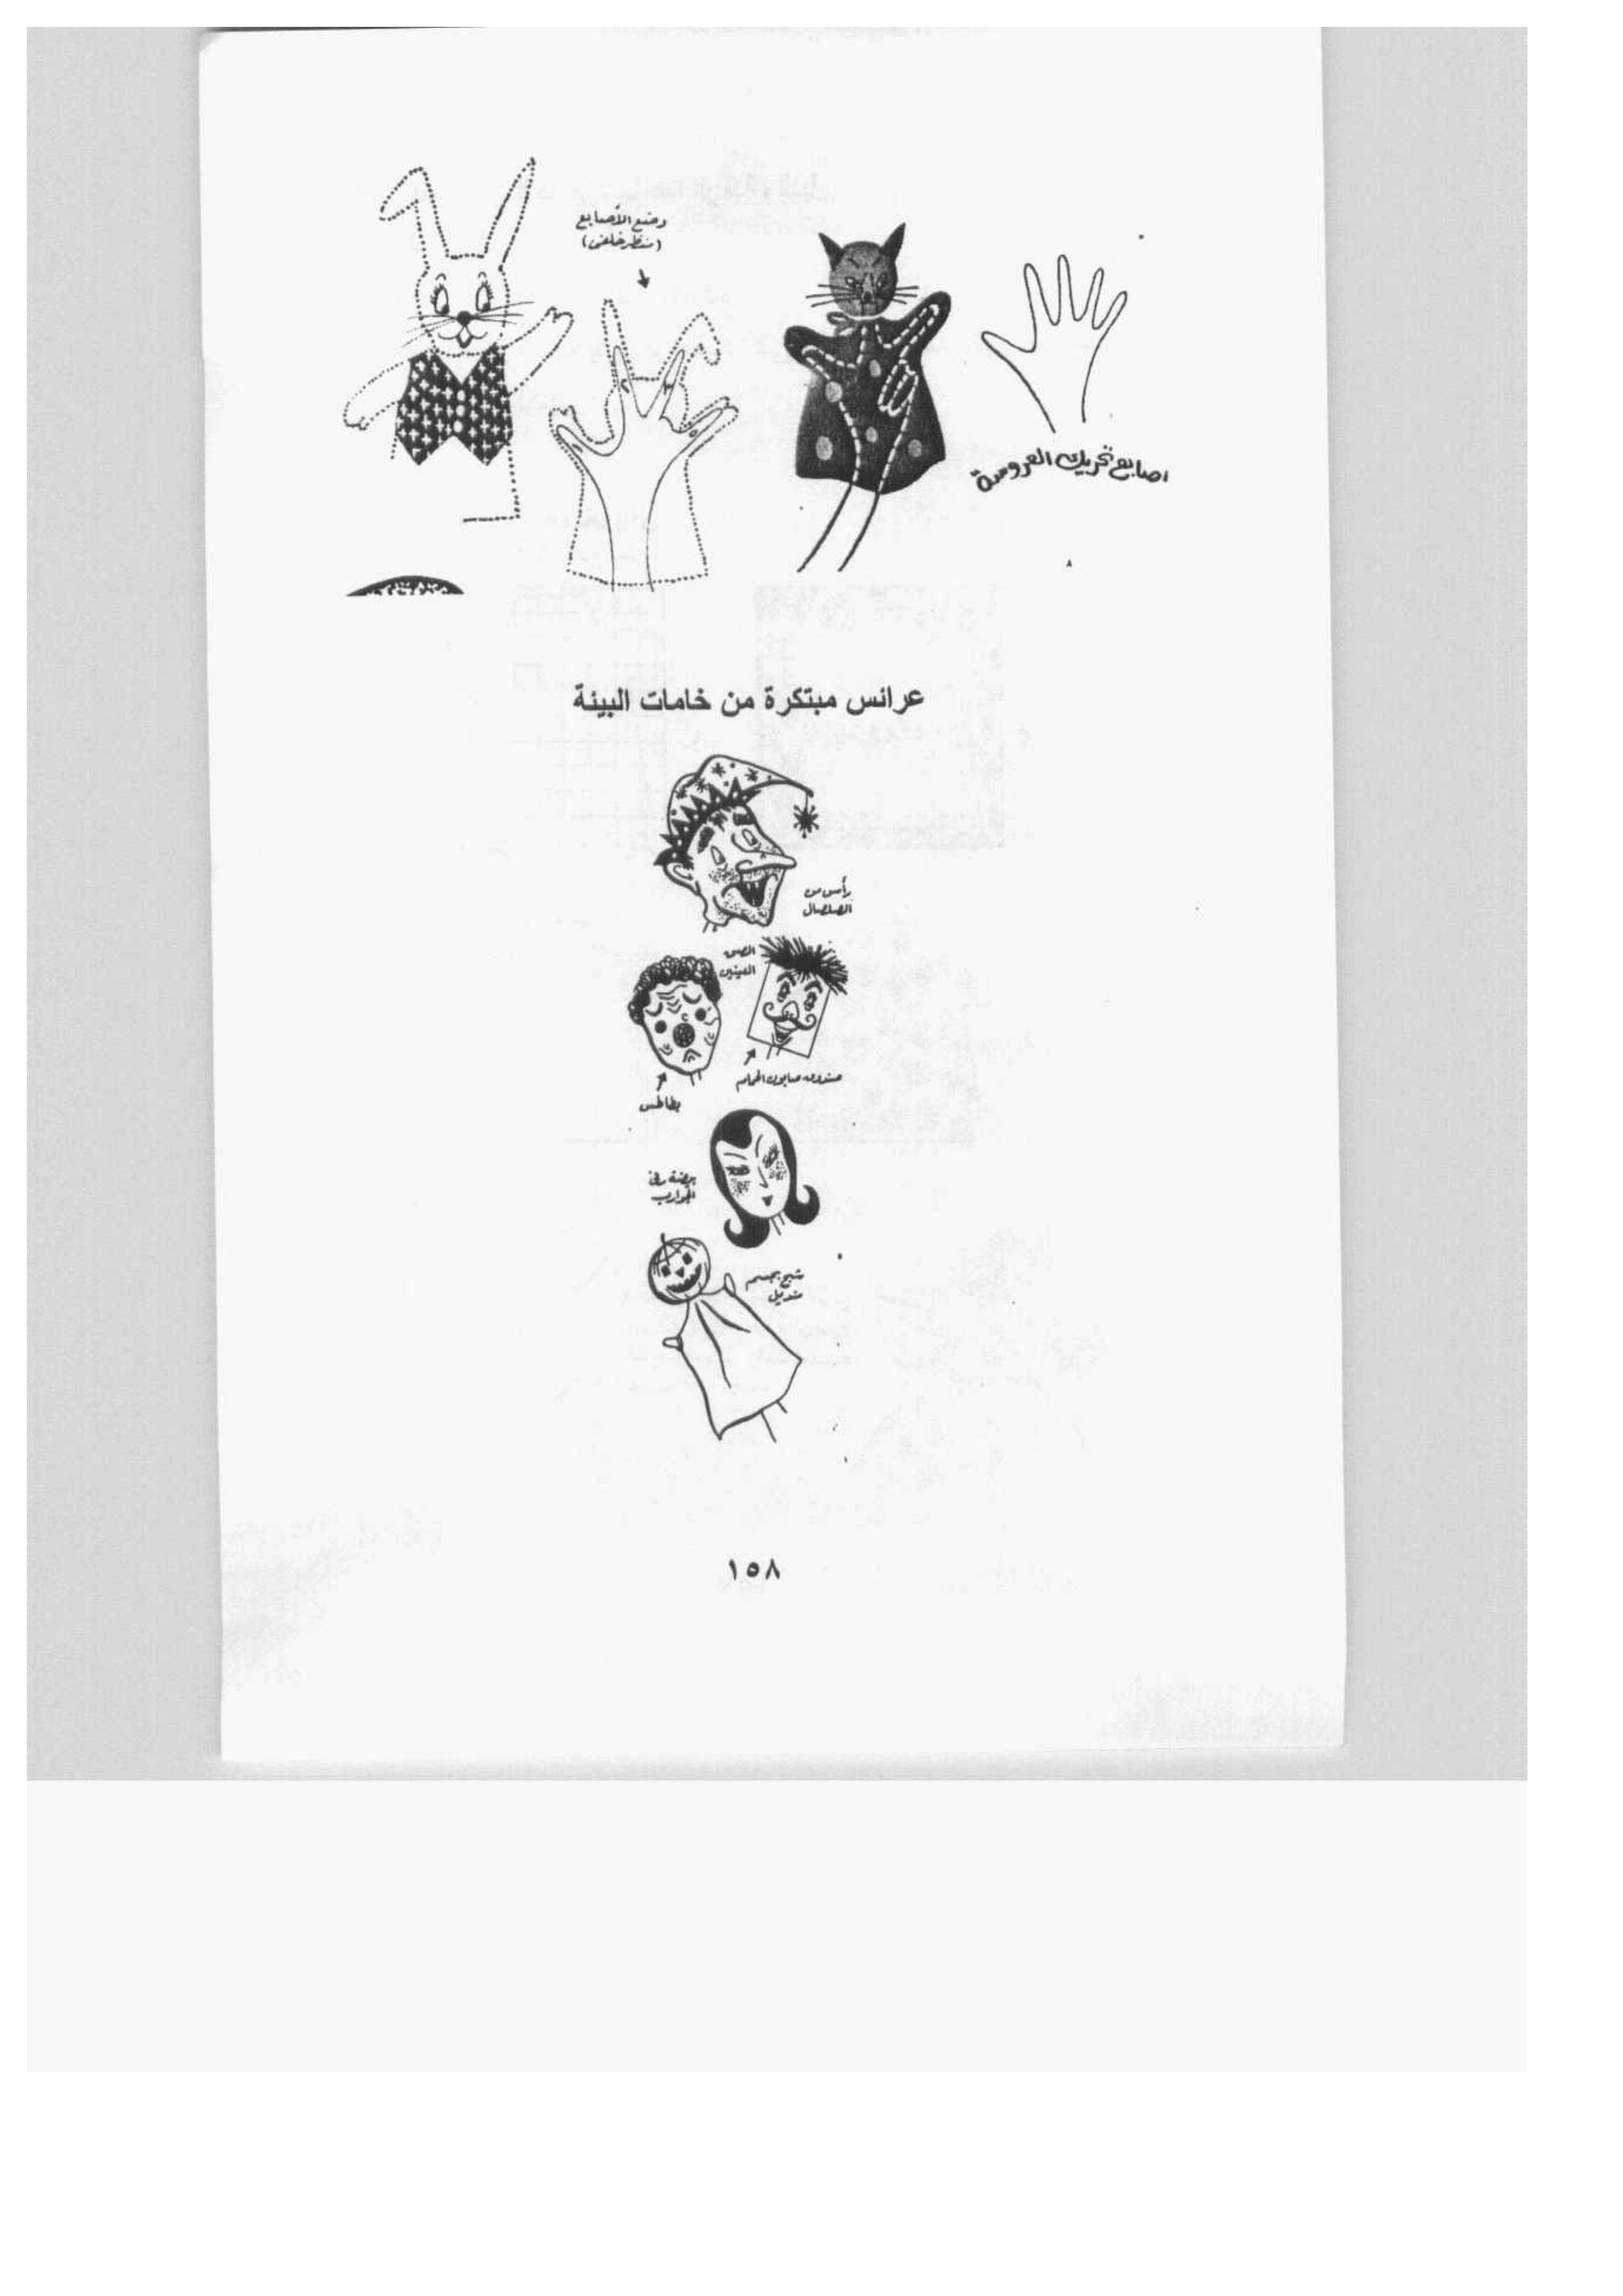 وضع الأصابع
(منظر خلفى)
اصابع تحريك العروسة
عرائس مبتكرة من خامات البيئة
رأس من
الصلصال
الصق
العينين
صندوق صابون الحمام
بطاطس
بيضة فى
الجوارب
شبح بجسم
منديل
١٥٨